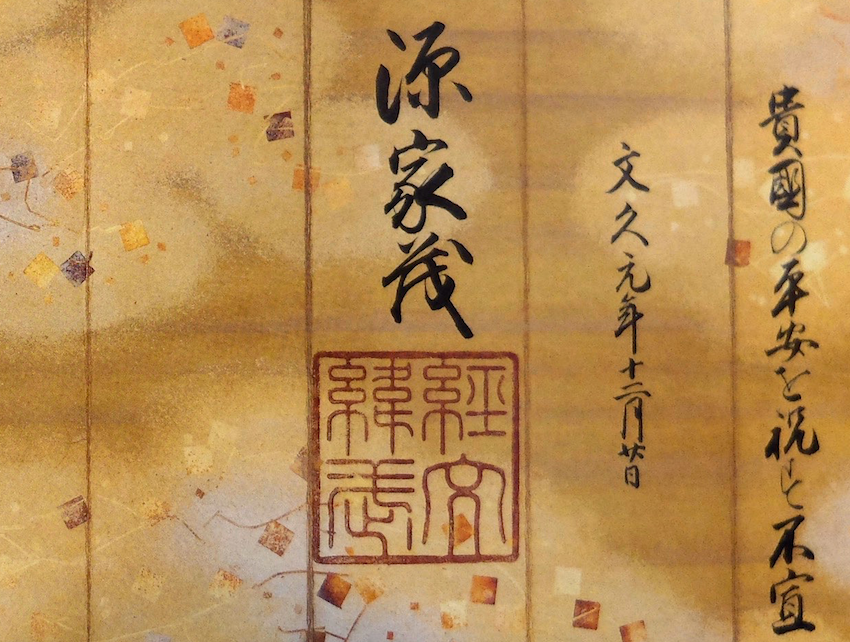 貴國の平安を祝すと不宣
文久元年十二月廿日
源家茂
經文緯武